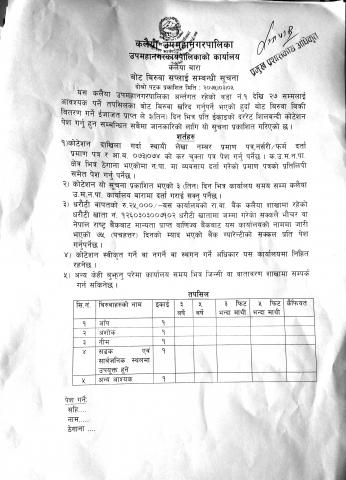 कलैया उपमहानगरपालिका
उपमहानगरकार्यपालिकाको कार्यालय
कलैया बारा
बोट बिरुवा सप्लाई सम्बन्धी सूचना
दोश्रो पटक प्रकाशित मिति:
प्रमुख प्रशासकीय अधिकृत
यस कलैया उपमहानगरपालिका अर्न्तगत रहेको वडा नं.१ देखि २७ सम्मलाई
आवश्यक पर्ने तपसिलका बोट बिरुवा खरिद गर्नुपर्ने भएको हुदाँ बोट बिरुवा बिक्री
वितरण गर्ने ईजाजत प्राप्त ले ३(तिन) दिन भित्र प्रति ईकाइको दररेट शिलबन्दी कोटेशन
पेश गर्नु हुन सम्बन्धित सबैमा जानकारीको लागि यो सूचना प्रकाशित गरिएको छ ।
शर्तहरु
१)कोटेशन दाखिला गर्दा स्थायी लेखा नम्बर प्रमाण पत्र,नर्सरी/फर्म दर्ता
प्रमाण पत्र र आ.व. ०७३/०७४ को कर चुक्ता पत्र पेश गर्नु पर्नेछ । क.उ.म.न.पा.
क्षेत्र भित्र ठेगाना भएकोमा न.पा. मा व्यवसाय दर्ता गरेको प्रमाण पत्रको प्रतिलिपी
समेत पेश गर्नु पर्नेछ ।
२) कोटेशन यो सूचना प्रकाशित भएको ३ (तिन) दिन भित्र कार्यालय समय सम्म कलैया
उ.म.न.पा. कार्यालय बारामा दर्ता गराई सक्नु पर्नेछ ।
३) धरौटी बापतको रु.२५,०००/-यस कार्यालयको रा.वा. बैंक कलैया शाखामा रहेको
धरौटी खाता नं. धरौटी खातामा जम्मा गरेको सक्कलै भौचर वा
नेपाल राष्ट्र बैंकबाट मान्यता प्राप्त वाणिज्य बैंकबाट यस कार्यालयको नाममा जारी
भएको ७५ (पचहत्तर) दिनको म्याद भएको बैंक ग्यारेन्टीको सक्कल प्रति पेश
गर्नुपर्नेछ ।
४) कोटेशन स्वीकृत गर्ने वा नगर्ने वा स्थगन गर्ने अधिकार यस कार्यालयमा निहित
रहनेछ ।
५) अन्य केही बुझ्नु परेमा कार्यालय समय भित्र जिन्सी वा वातावरण शाखामा सम्पर्क
गर्न सकिनेछ ।
तपसिल
सि.नं. बिरुवाहरुको नाम ईकाई ३ वर्ष ५ वर्ष ३ फिट भन्दा माथी ५ फिट भन्दा माथी कैफियत
१ आँप १
२ अशोक १
३ नीम १
४ सडक एवं सार्वजनिक स्थलमा उपयुक्त हुने १
५ अन्य आवश्यक १
पेश गर्ने:
सहि....
नाम.....
ठेगाना ....